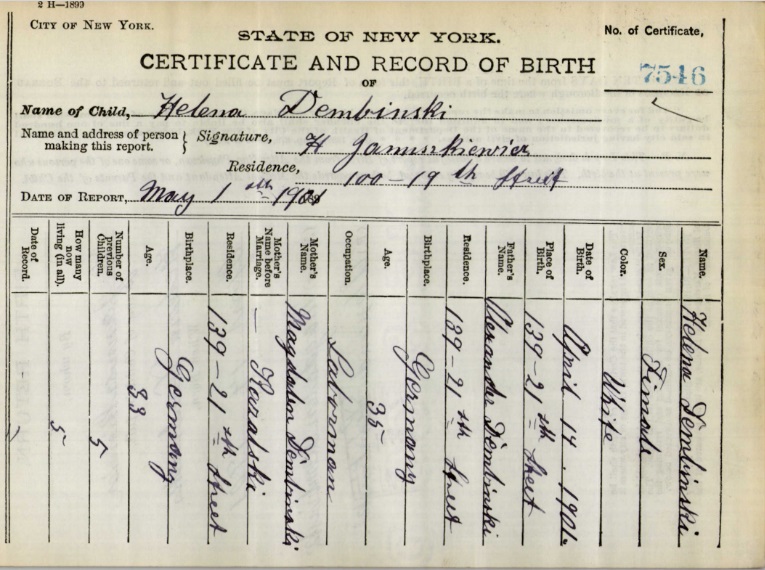 2 H—1899
CITY OF NEW YORK.
STATE OF NEW YORK.
No. of Certificate,
CERTIFICATE AND RECORD OF BIRTH
7546
OF
Name of Child, Helena Dembinski
Name and address of person making this report. } Signature, H Januszkiewicz
Residence, 100 - 19 th Street
DATE OF REPORT, May 1 sth 1901
Name. Helena Dembinski
Sex. Fimale
Color. White
Date of Birth. April 14. 1901.
Place of Birth. 139 - 21 sth Street
Father's Name. Alexander Dembinski
Residence. 139 - 21 sth Street
Birthplace. Germany
Age. 35
Occupation. Laborman
Mother's Name. Magdalen Dembinski
Mother's Name before Marriage. —
Residence. 139 - 21 sth Street
Birthplace. Germany
Age. 33
Number of previous Children. 5
How many now living (in all). 5
Date of Record. "